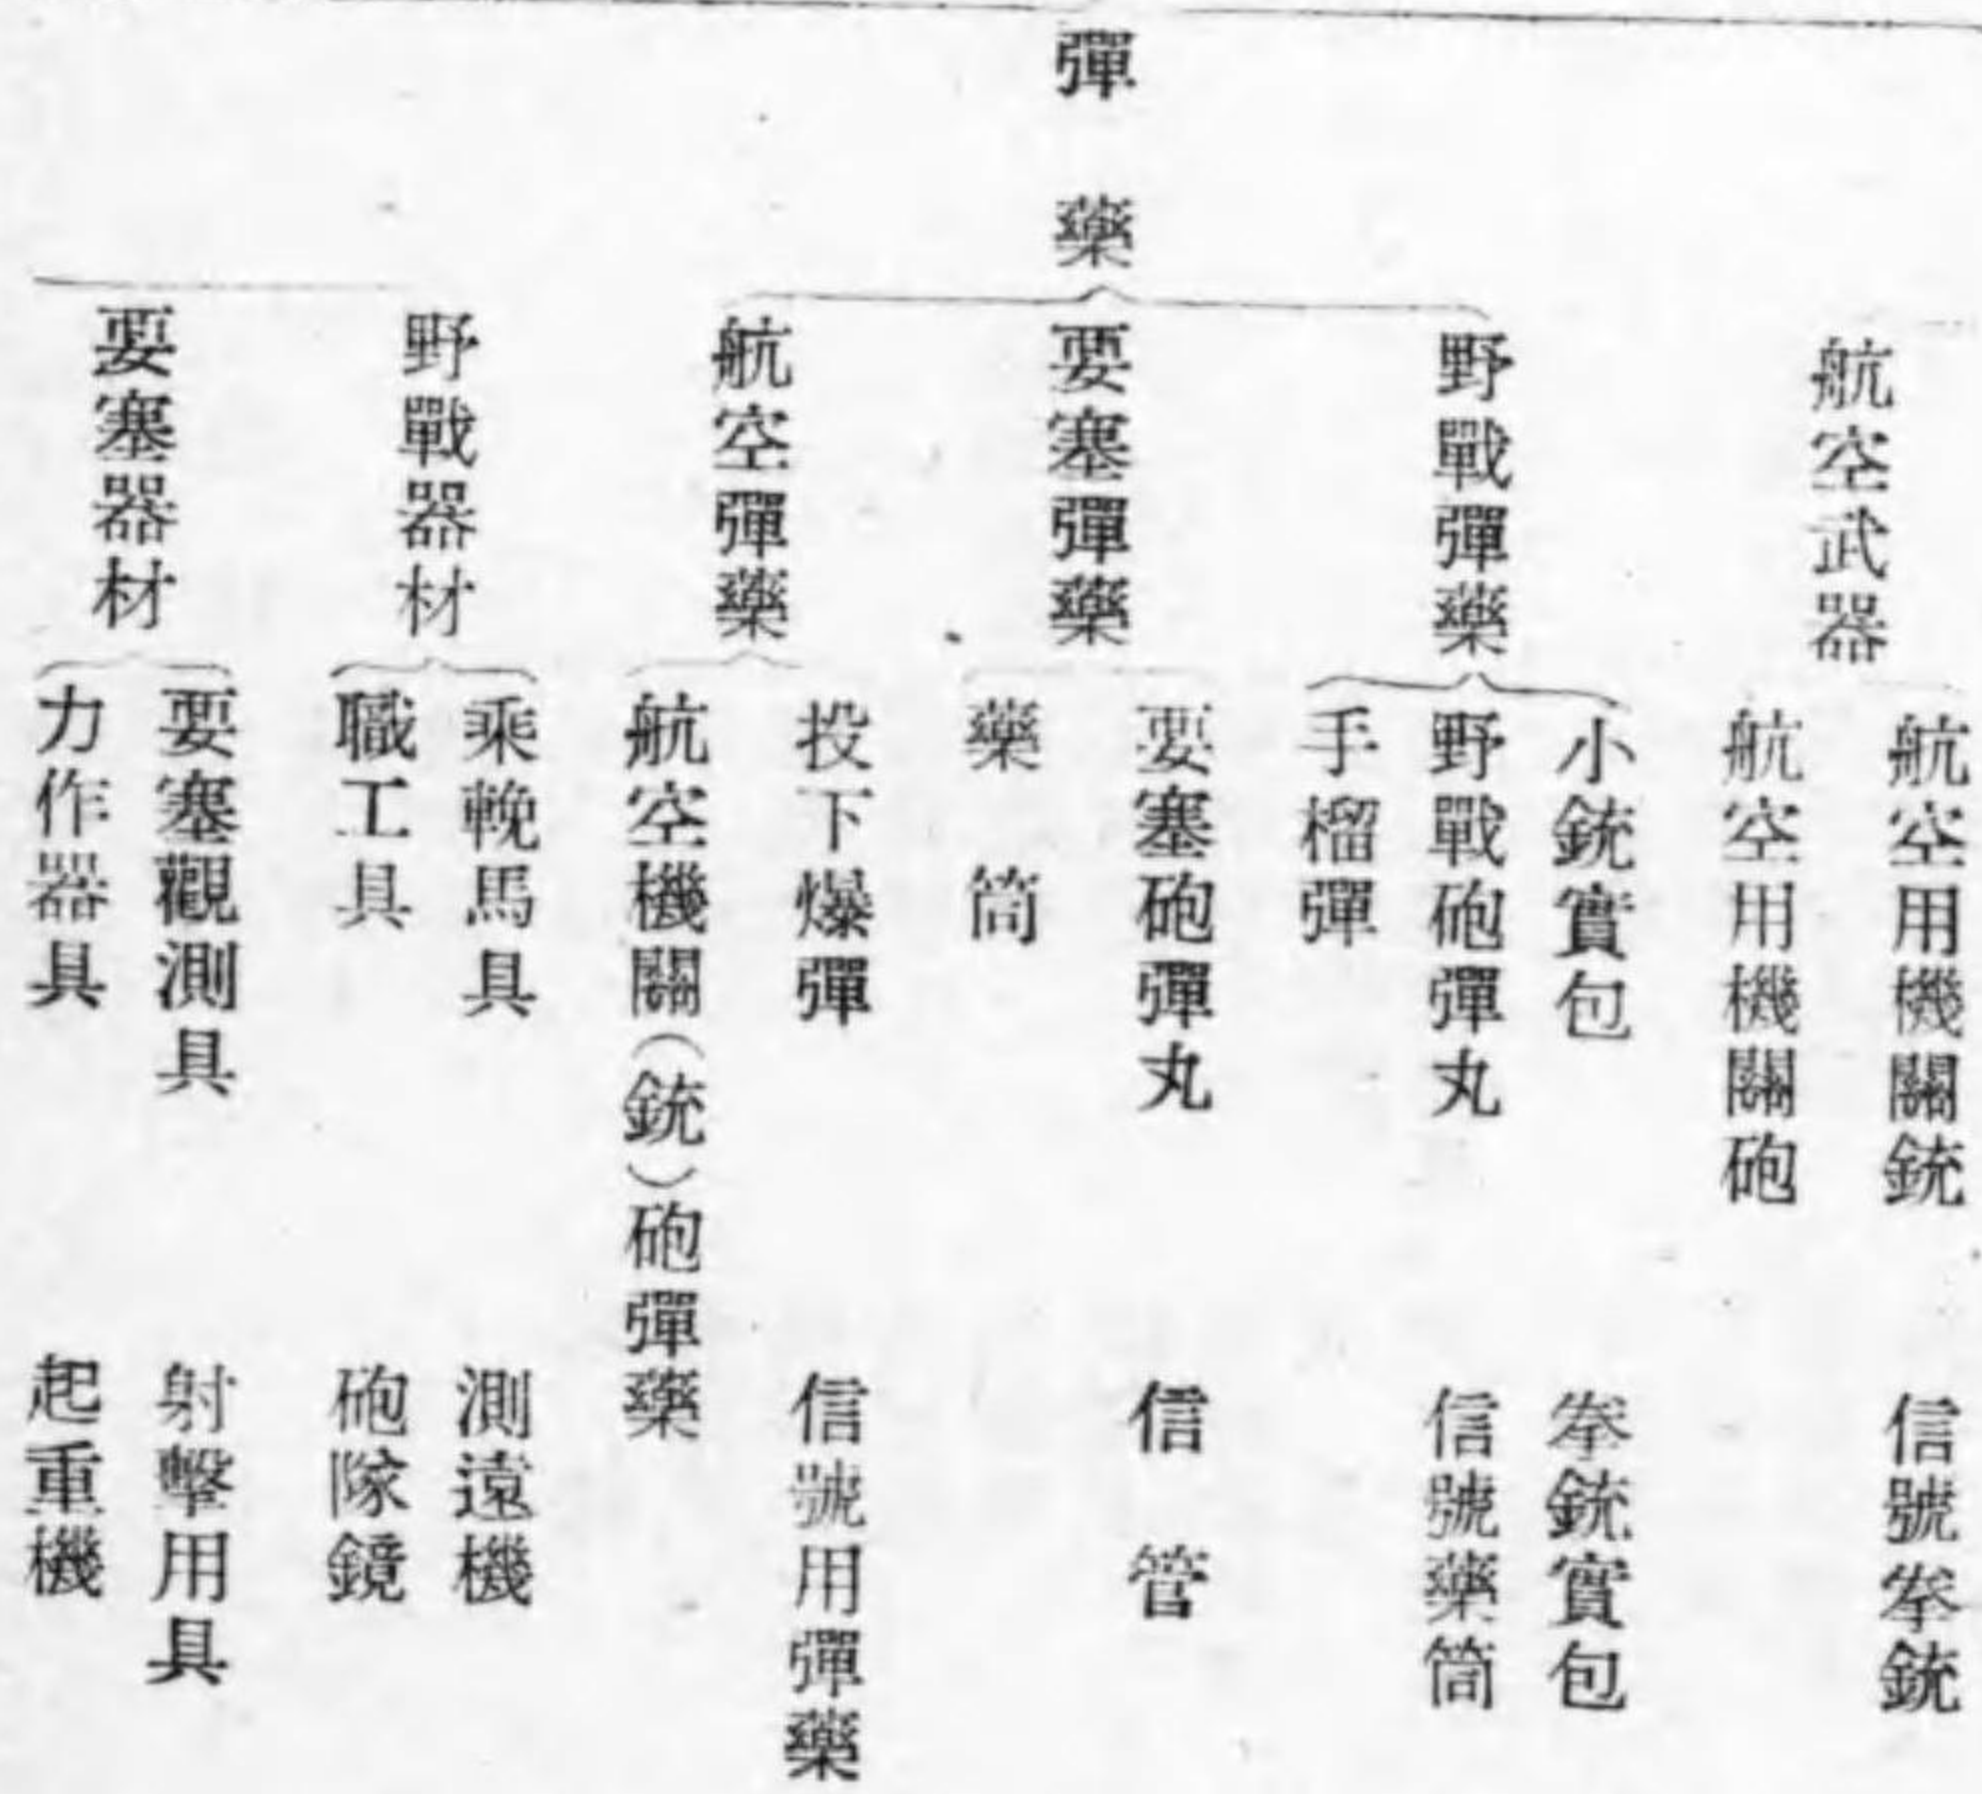 航空武器
航空用機關銃　信號拳銃
航空用機關砲
彈藥
野戰彈藥
小銃實包　拳銃實包
野戰砲彈丸　信號藥筒
手榴彈
要塞彈藥
要塞砲彈丸　信管
藥筒
航空彈藥
投下爆彈　信號用彈藥
航空機關(銃)砲彈藥
野戰器材
乘輓馬具　測遠機
職工具　砲隊鏡
要塞器材
要塞觀測具　射擊用具
力作器具　起重機